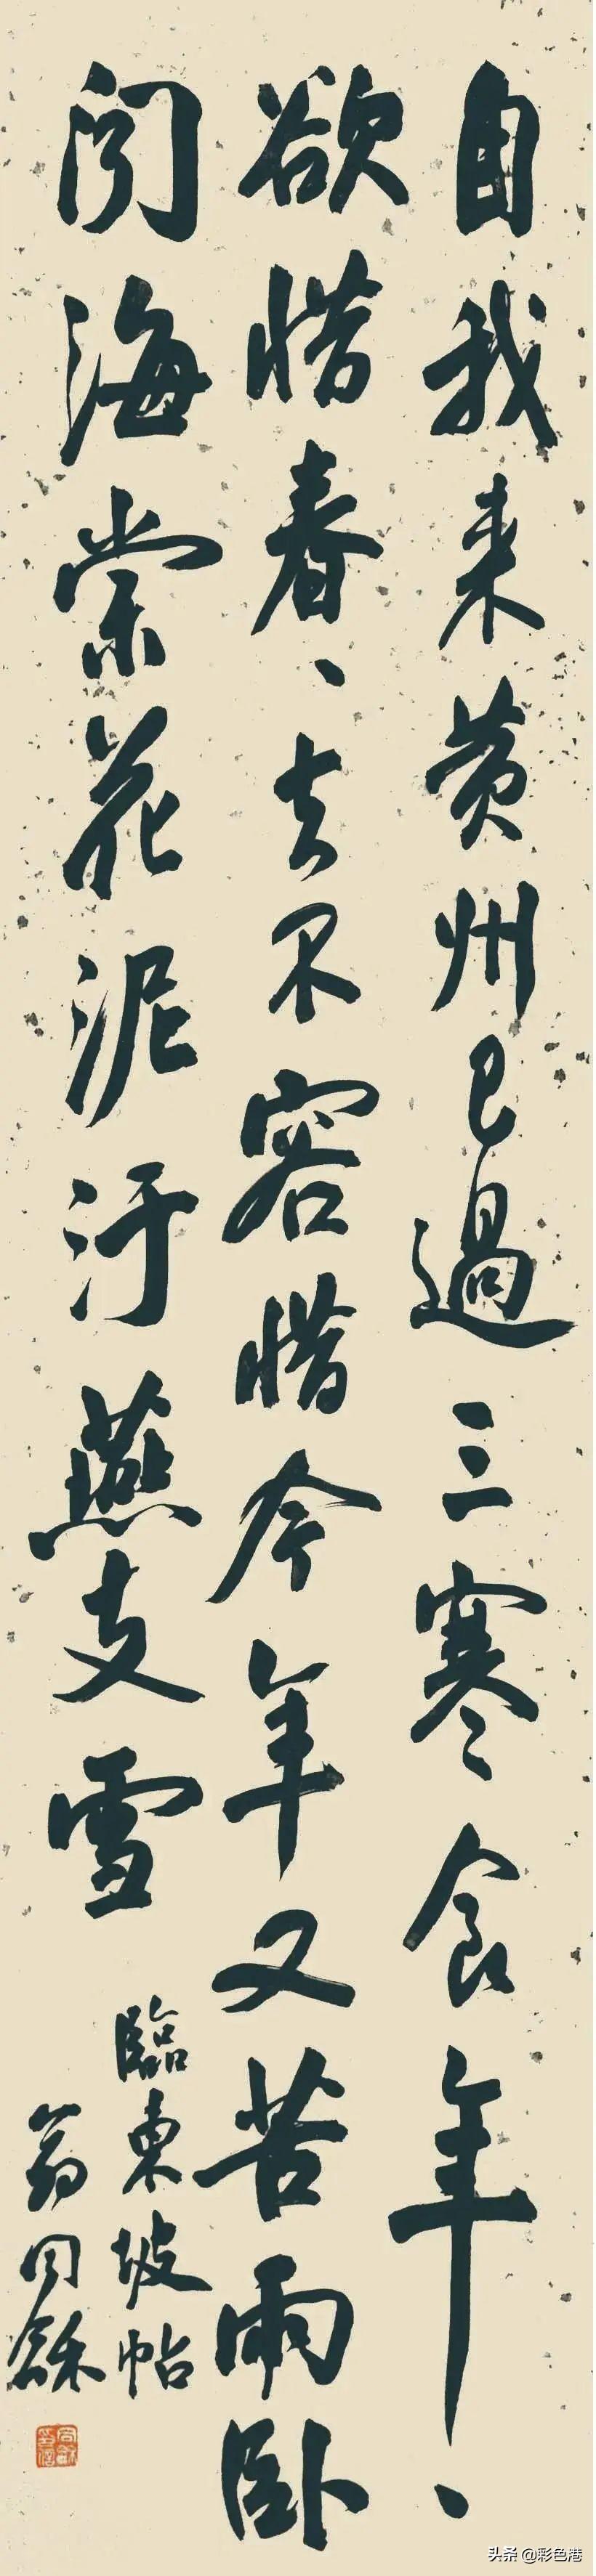 自我来黄州已過三寒食年、
欲惜春、去不容惜今年又苦雨卧
闻海棠花泥汙燕支雪
臨東坡帖
翁同龢
头条 @彩色港